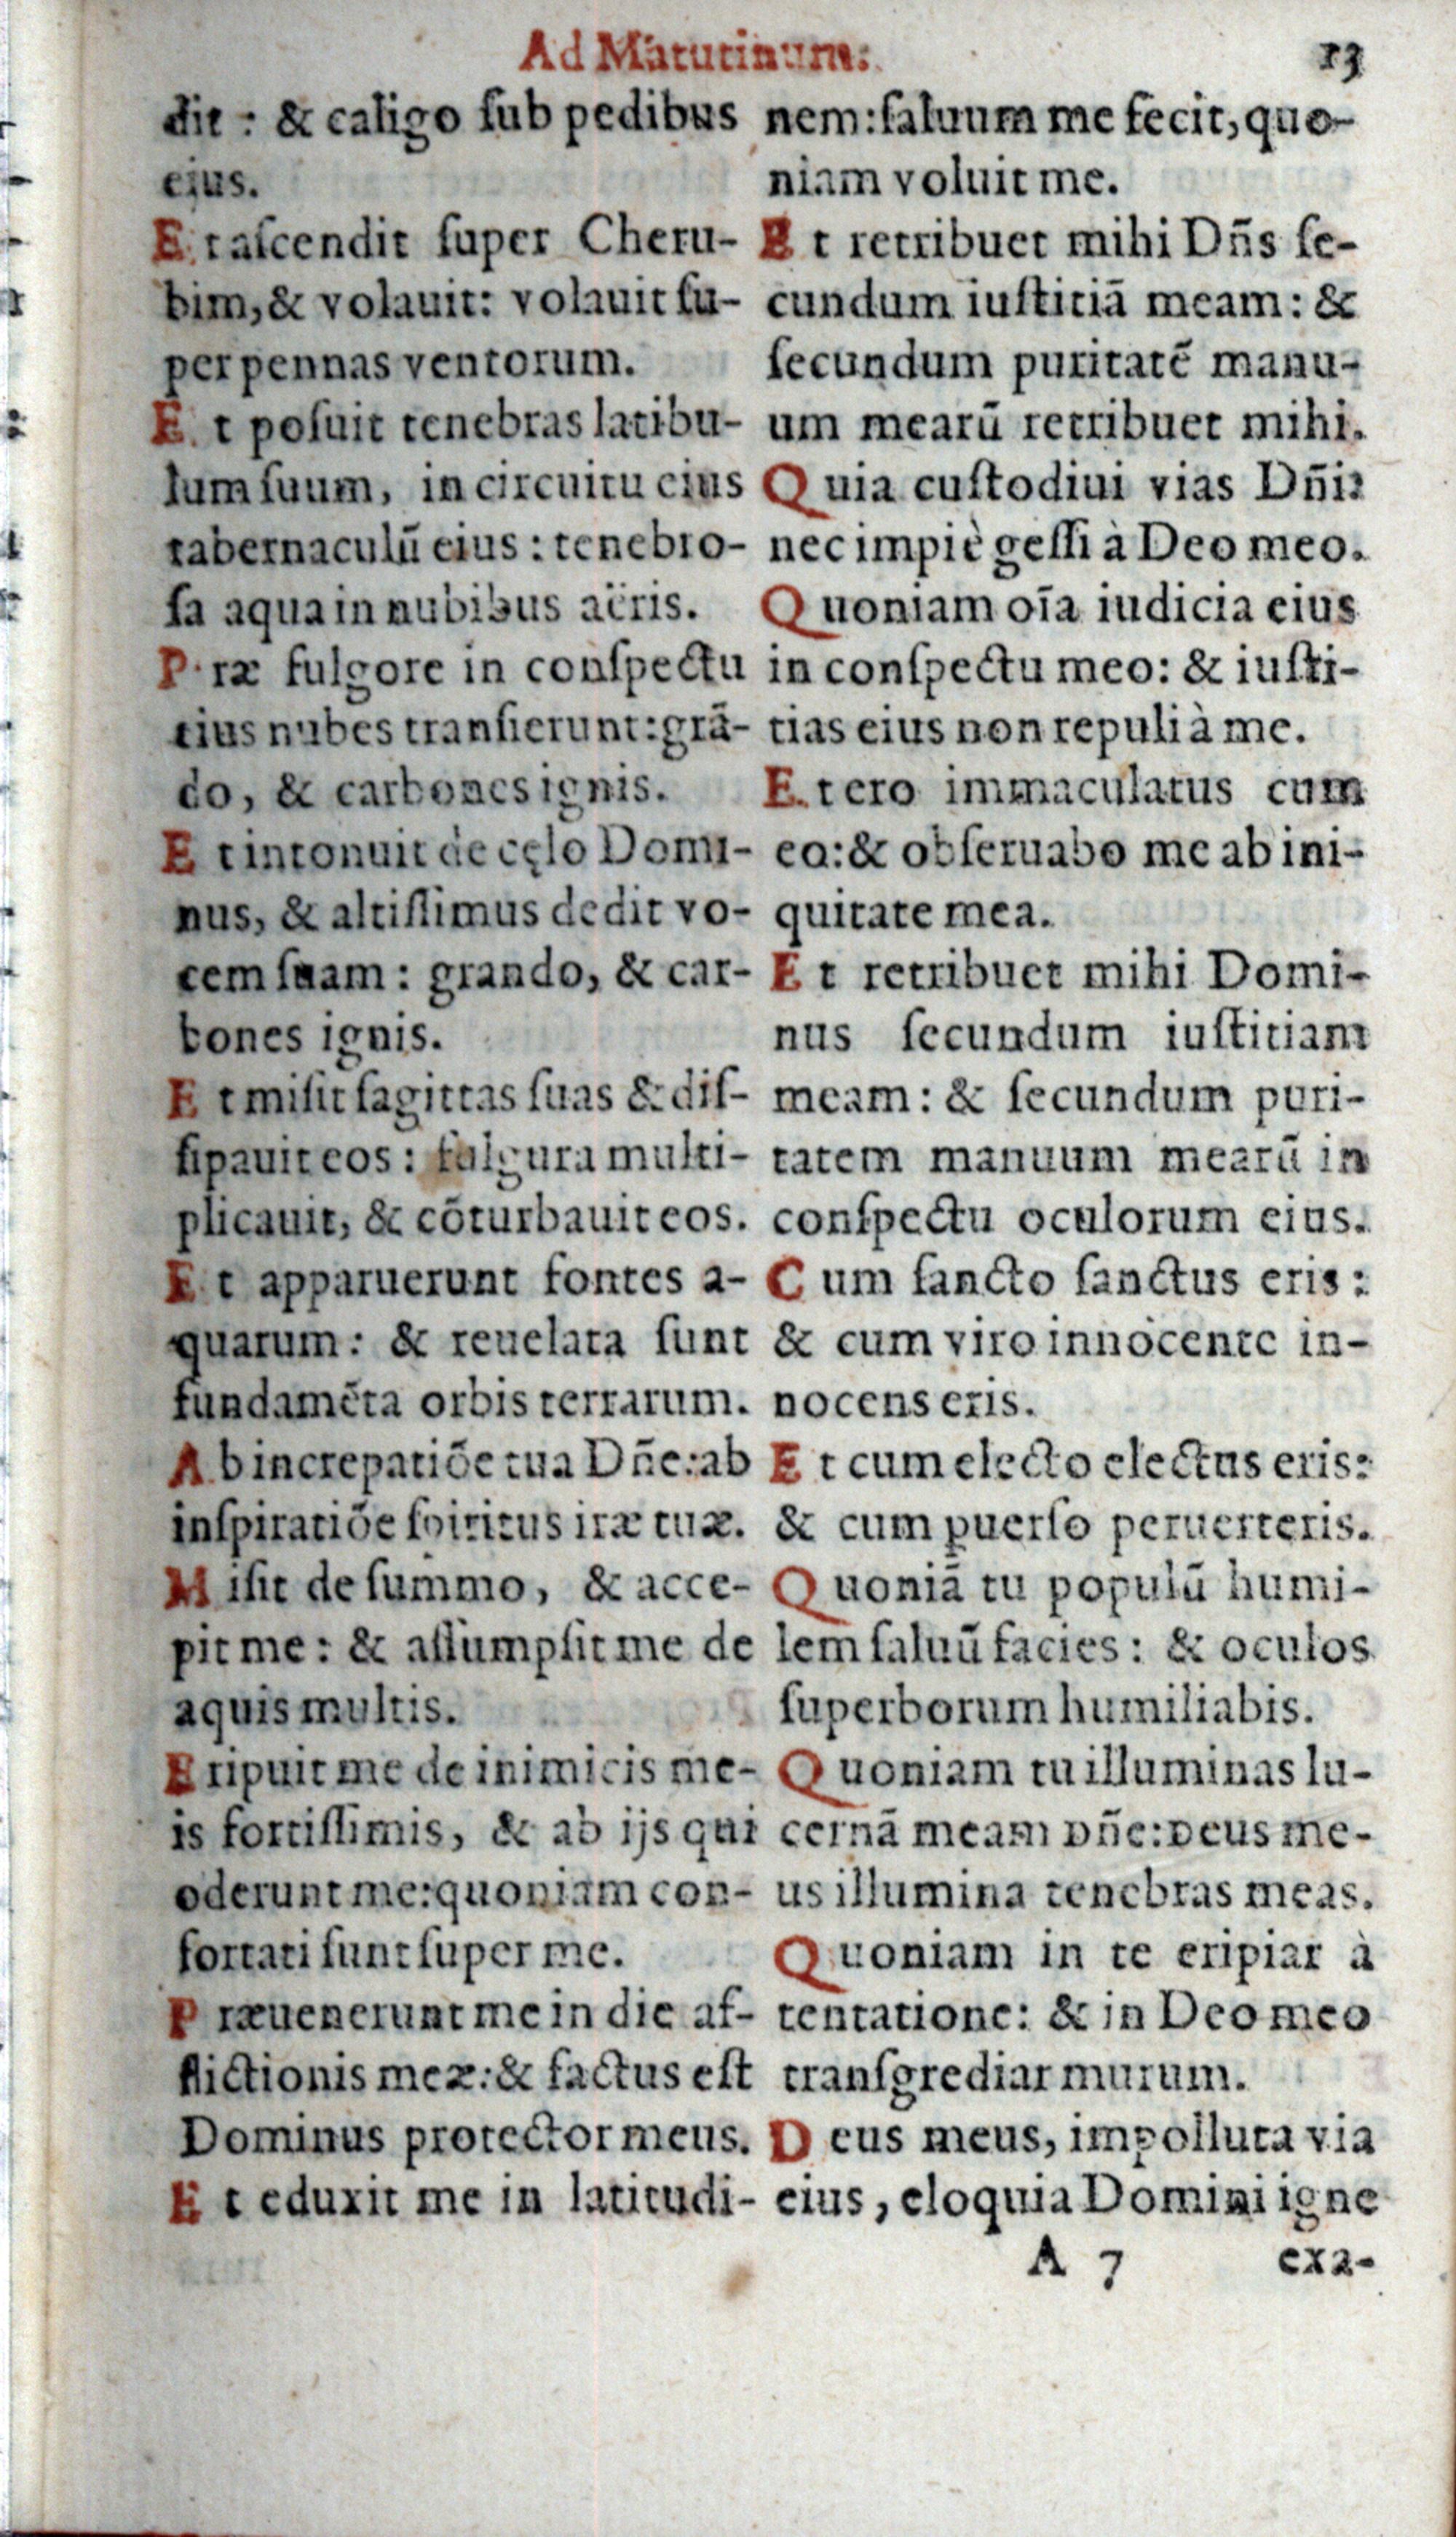 Ad Matutinum.
13
dit : & caligo ſub pedibus
eius.
E t aſcendit ſuper Cheru-
bim, & volauit: volauit ſu-
per pennas ventorum.
E t poſuit tenebras latibu-
lum ſuum, in circuitu eius
tabernaculū eius : tenebro-
ſa aqua in nubibus aëris.
P ræ fulgore in conſpectu
eius nubes tranſierunt: grā-
do, & carbones ignis.
E t intonuit de cęlo Domi-
nus, & altiſſimus dedit vo-
cem ſuam : grando, & car-
bones ignis.
E t miſit ſagittas ſuas & diſ-
ſipauit eos : fulgura multi-
plicauit, & cōturbauit eos.
E t apparuerunt fontes a-
quarum : & reuelata ſunt
fundamēta orbis terrarum.
A b increpatiōe tua Dñe: ab
inſpiratiōe ſpiritus iræ tuæ.
M iſit de ſummo, & acce-
pit me : & aſſumpſit me de
aquis multis.
E ripuit me de inimicis me-
is fortiſſimis, & ab ijs qui
oderunt me: quoniam con-
fortati ſunt ſuper me.
P ræuenerunt me in die af-
flictionis meæ: & factus eſt
Dominus protector meus.
E t eduxit me in latitudi-
nem: ſaluum me fecit, quo-
niam voluit me.
E t retribuet mihi Dñs ſe-
cundum iuſtitiā meam : &
ſecundum puritatē manu-
um mearū retribuet mihi.
Q uia cuſtodiui vias Dñi:
nec impiè geſſi à Deo meo.
Q uoniam oīa iudicia eius
in conſpectu meo: & iuſti-
tias eius non repuli à me.
E t ero immaculatus cum
eo: & obſeruabo me ab ini-
quitate mea.
E t retribuet mihi Domi-
nus ſecundum iuſtitiam
meam : & ſecundum puri-
tatem manuum mearū in
conſpectu oculorum eius.
C um ſancto ſanctus eris :
& cum viro innocente in-
nocens eris.
E t cum electo electus eris:
& cum ꝑuerſo peruerteris.
Q uoniā tu populū humi-
lem ſaluū facies : & oculos
ſuperborum humiliabis.
Q uoniam tu illuminas lu-
cernā meam Dñe: Deus me-
us illumina tenebras meas.
Q uoniam in te eripiar à
tentatione: & in Deo meo
tranſgrediar murum.
D eus meus, impolluta via
eius, eloquia Domini igne
A 7
exa-